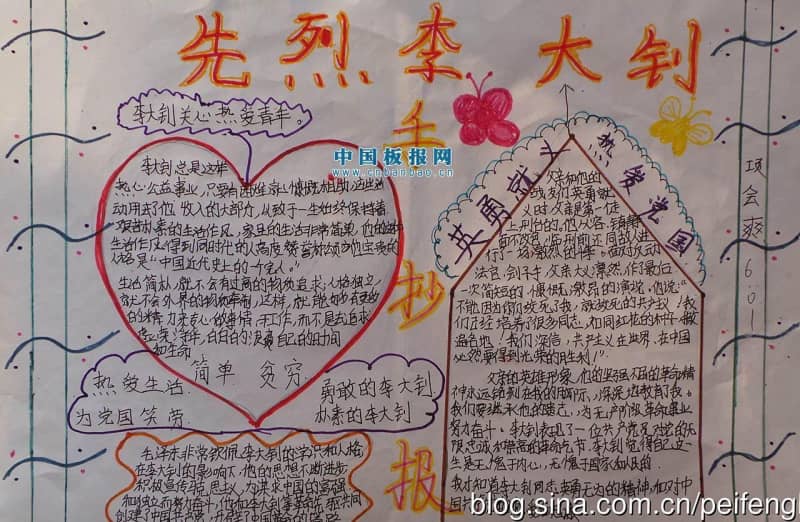 先烈李大钊
手
抄
报
李大钊关心热爱青年。
中国板报网
www.cnbanbao.cn
李大钊总是这样
热心公益事业，只要有困难
动用去了他收入的大部分，从致于一生始终保持着
艰苦朴素的生活作风，家里的生活非常简单，他的这种
生活作风得到同时代的人高度赞赏
格是"中国近代史上的一个完人。"
生活简朴，就不会有过高的物质追求，人格独立，
就不会外界的物质牵制，这样，就能够有更多
的精力来专心做事情，干工作，而不是去追求
自己的时间
和生命
简单 贫穷
热爱生活
为党国笑劳
勇敢的李大钊
朴素的李大钊
毛泽东非常钦佩李大钊的学识和人格
在李大钊的影响下，他的思想不断进步
积极宣传马 思主义，为谋求中国的富强
和独立而努力奋斗，他和李大钊等革命 共同
英勇就义
热爱党国
父亲和他的
战友们英勇就
义时父亲是第一位
上刑台的，他从容、镇静
面不改色，临刑前还同敌人进
行了一场激烈的斗争。面对反动的
法官、刽子手，父亲大义凛然，作了最后
一次简短的、慷慨激昂的演说，他说："
不能因为你们绞死了我，就绞死的共产主义！我
们已经培养了很多同志，如同红花的种子，撒
遍各地！我们深信，共产主义在世界、在中国
必然要得到光荣的胜利！"
父亲的英雄形象，他的坚强不屈的革命精
神永远铭刻在我的脑际，深深地教育了我。
我们要继承他的遗志，为无产阶级革命事业
努力奋斗。李大钊表现了一位共产党员对党的无
限忠诚和崇高的革命气节，李大钊觉得自己这一
生是无愧于内心，无愧于国家和人民的。
项会爽 6.01
blog.sina.com.cn/peifengl